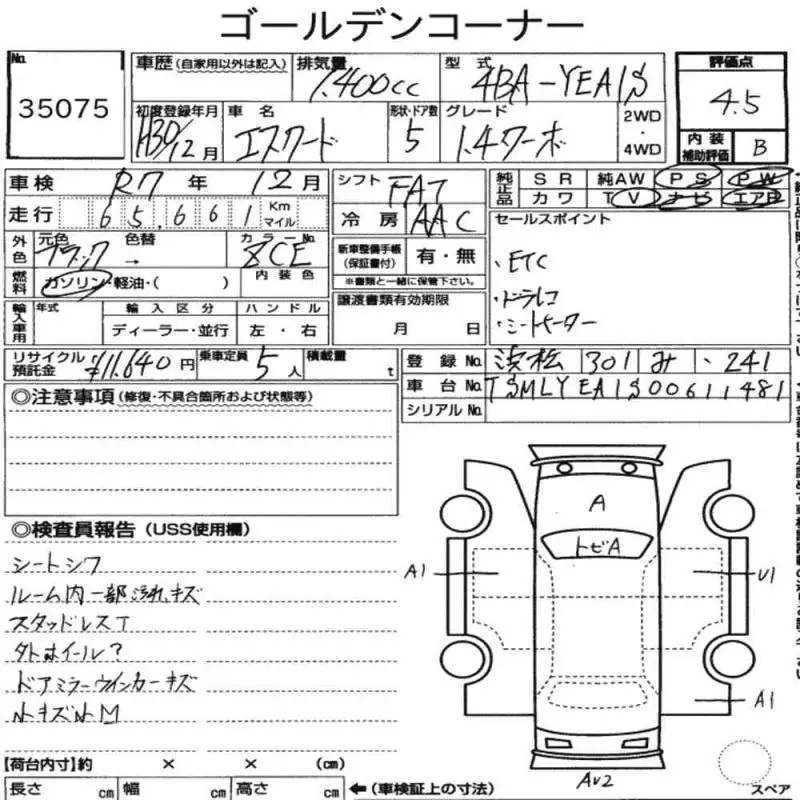 ゴールデンコーナー
No. 35075
車歴 (自家用以外は記入)
排気量 1.400cc
型式 4BA-YEA1S
評価点 4.5
内装補助評価 B
初度登録年月 H30/12月
車名 エスクード
形状・ドア数 5
グレード 1.4ターボ
2WD・4WD
車検 R7年 12月
走行 65,661 Km マイル
シフト FAT
冷房 AAC
純正品 SR 純AW PS PW
カワ TV ナビ エアB
外色 元色 ブラック 色替 → カラーNo. ZCE
燃料 ガソリン・軽油・( ) 内装色
新車整備手帳(保証書付) 有・無
※書類と一緒に保管下さい。
セールスポイント
・ETC
・ドラレコ
・シートヒーター
輸入車用 年式 輸入区分 ハンドル
ディーラー・並行 左・右
譲渡書類有効期限
月 日
リサイクル預託金 ¥11,640円 乗車定員 5人 積載量 t
登録No. 浜松 301 み ・241
車台No. TSMLYEA1S00611481
シリアルNo.
◎注意事項 (修復・不具合箇所および状態等)
◎検査員報告 (USS使用欄)
シートシワ
ルーム内一部汚れ、キズ
スタッドレスT
外ホイール?
ドアミラーウインカーキズ
小キズ小M
A
トビA
A1
U1
A1
AU2
スペア
【荷台内寸】約 × × (cm)
長さ cm 幅 cm 高さ cm ←(車検証上の寸法)